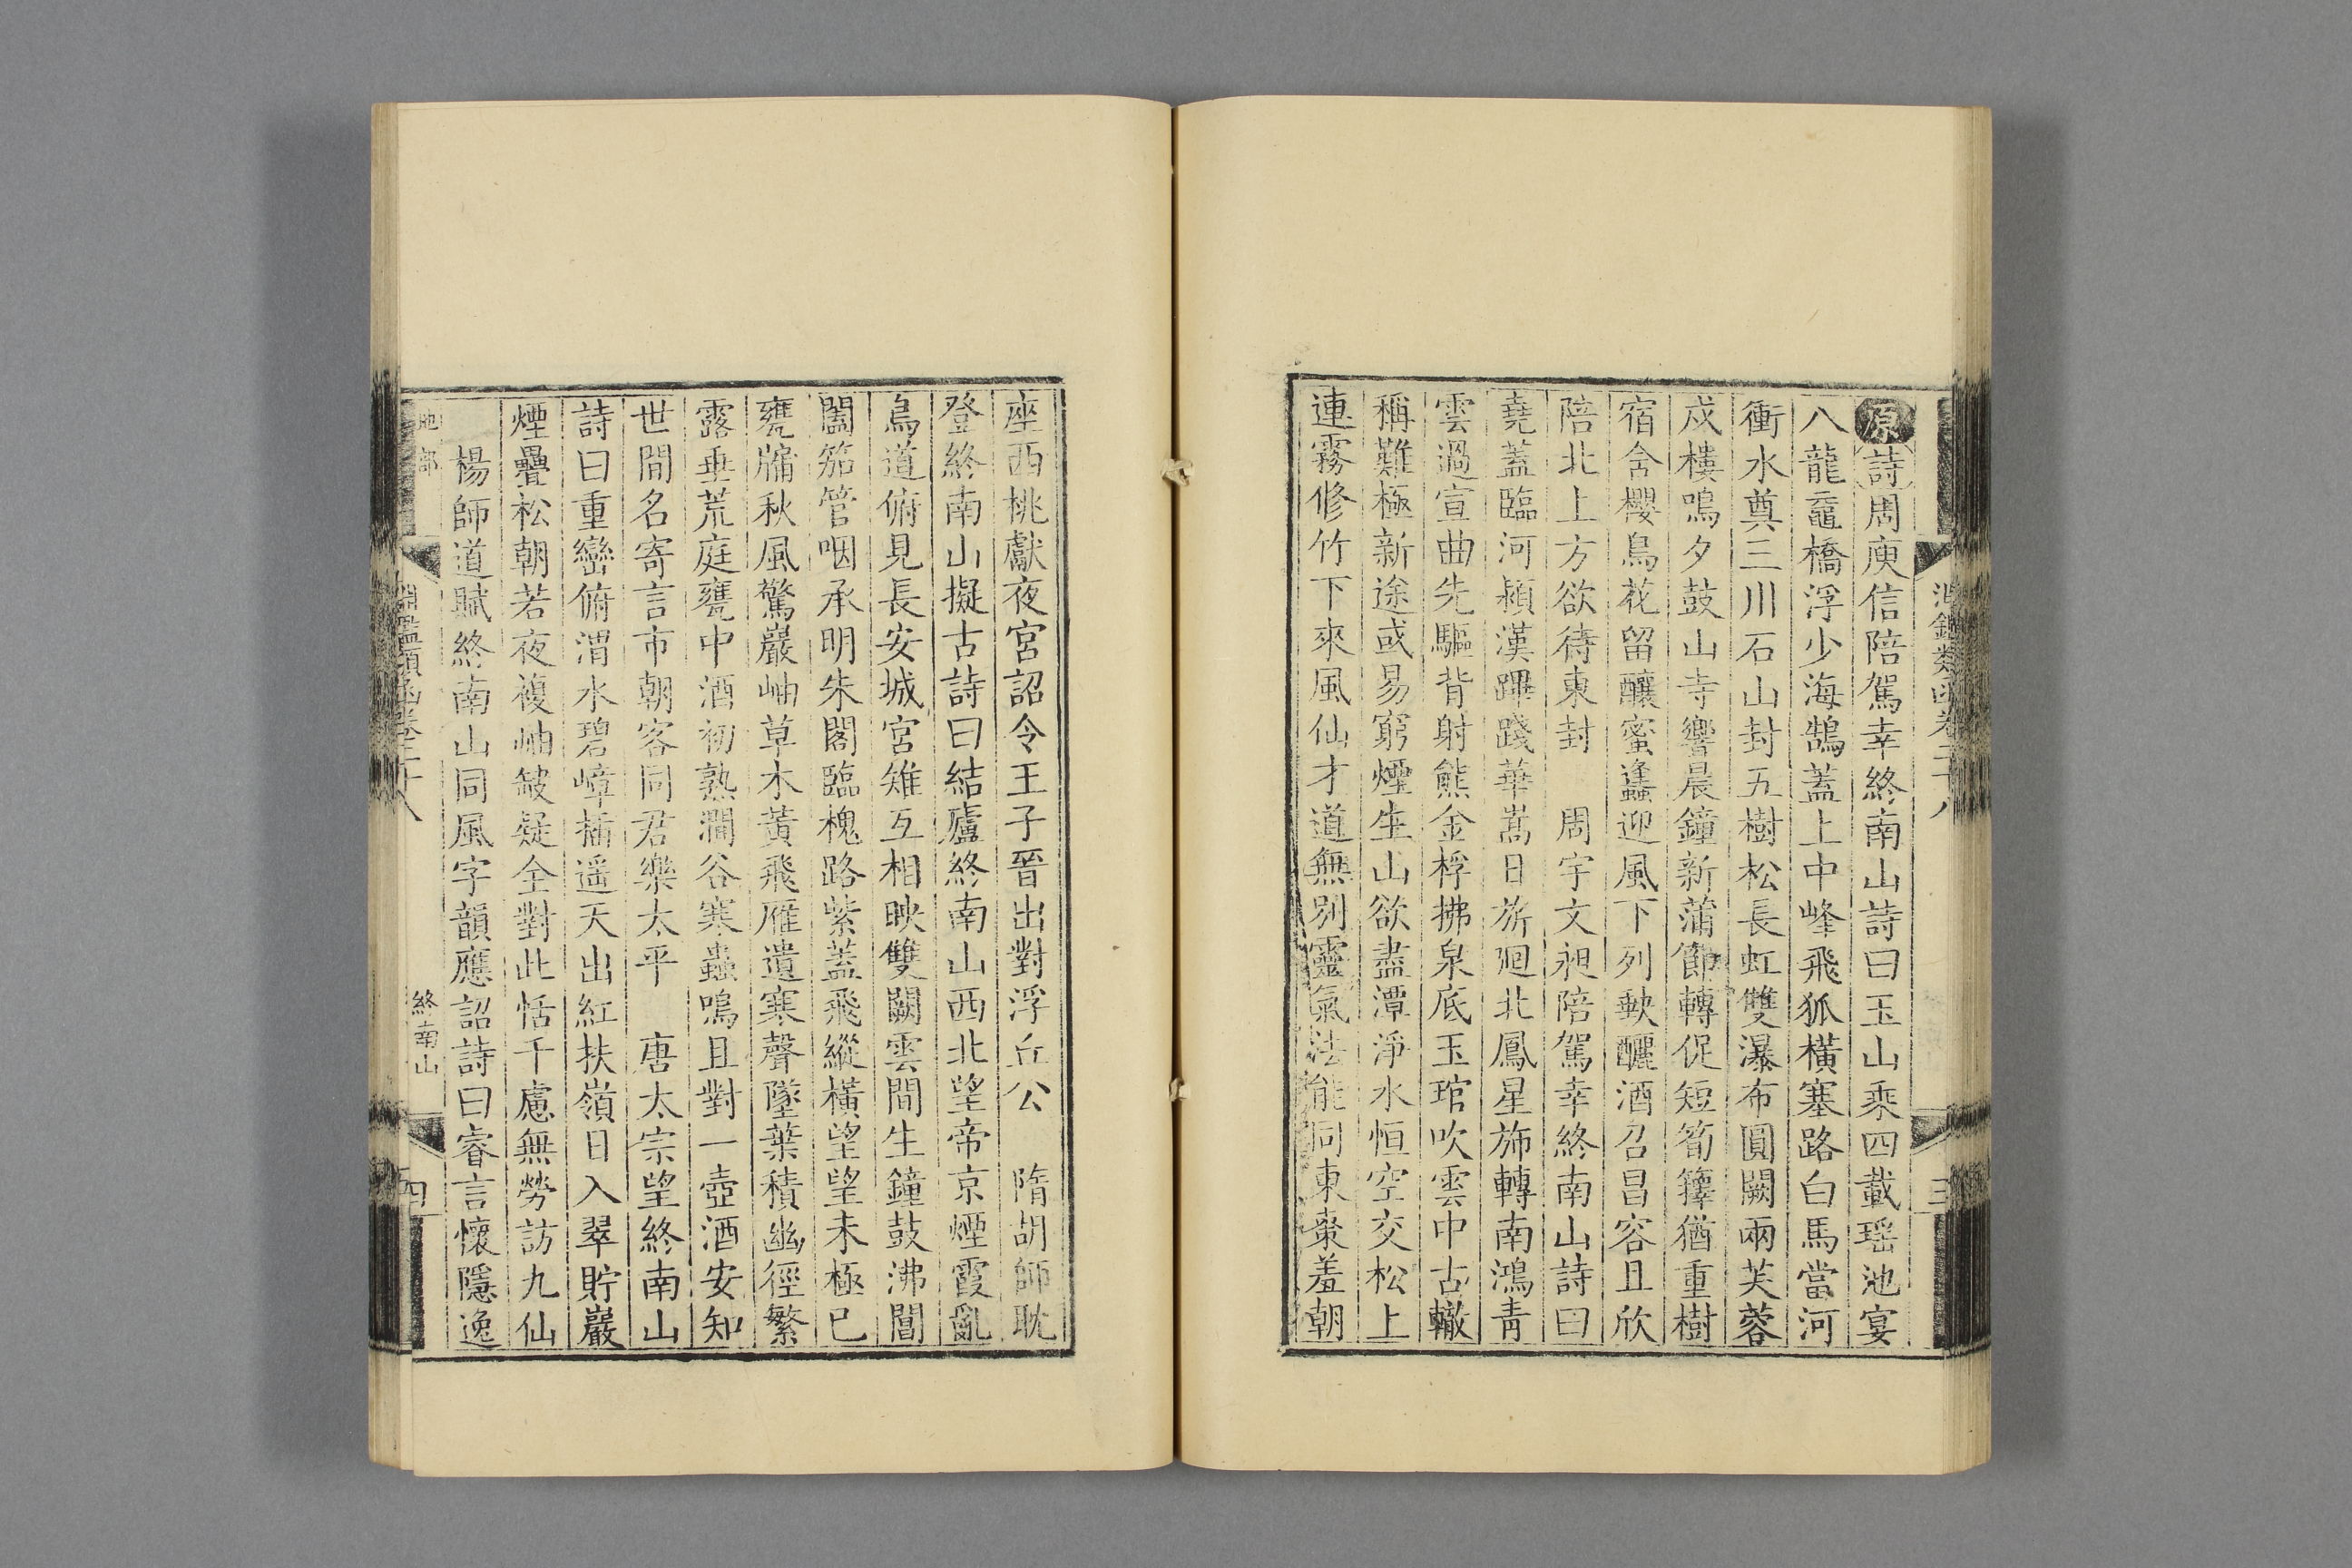 淵鑑類函卷二十八
三
原詩周庾信陪駕幸終南山詩曰玉山乘四載瑶池宴
八龍鼁橋浮少海鵠蓋上中峰飛狐橫塞路白馬當河
衝水奠三川石山封五樹松長虹雙瀑布圓闕兩芙蓉
戍樓鳴夕鼓山寺響晨鐘新蒲節轉促短筍籜猶重樹
宿含櫻鳥花留釀蜜蠭迎風下列缺釃酒召昌容且欣
陪北上方欲待東封　周宇文昶陪駕幸終南山詩曰
堯蓋臨河潁漢蹕踐華嵩日旂廻北鳳星旆轉南鴻青
雲過宣曲先驅背射熊金桴拂泉底玉琯吹雲中古轍
稱難極新途或易窮煙生山欲盡潭淨水恒空交松上
連霧修竹下來風仙才道無別靈氣法能同東棗羞朝
座西桃獻夜宮詔令王子晉出對浮丘公　隋胡師耽
登終南山擬古詩曰結廬終南山西北望帝京煙霞亂
鳥道俯見長安城宮雉互相映雙闕雲間生鐘鼓沸閶
闔笳管咽承明朱閣臨槐路紫蓋飛縱橫望望未極已
甕牖秋風驚巖岫草木黃飛雁遺寒聲墜葉積幽徑繁
露垂荒庭甕中酒初熟澗谷寒蟲鳴且對一壺酒安知
世間名寄言市朝客同君樂太平　唐太宗望終南山
詩曰重巒俯渭水碧嶂插遥天出紅扶嶺日入翠貯巖
煙疊松朝若夜複岫皴疑全對此恬千慮無勞訪九仙
楊師道賦終南山同風字韻應詔詩曰睿言懷隱逸
地部
淵鑑類函卷二十八
終南山
四